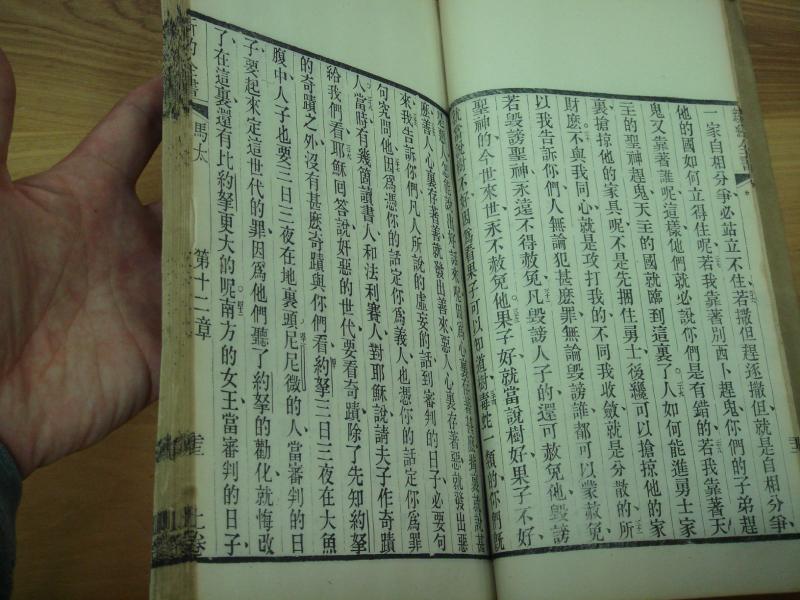 一家自相分爭必站立不住若撒但趕逐撒但就是自相分爭
他的國如何立得住呢若我靠著別西卜趕鬼你們的子弟趕
鬼又靠著誰呢這樣他們就必說你們是有錯的若我靠著天
主的聖神趕鬼天主的國就臨到這裏了人如何能進勇士家
裏搶掠他的家具呢不是先捆住勇士後纔可以搶掠他的家
財麽不與我同心就是攻打我的不同我收斂就是分散的所
以我告訴你們人無論犯甚麽罪無論毀謗誰都可以蒙赦免
若毀謗聖神永遠不得赦免凡毀謗人子的還可赦免他毀謗
聖神的今世來世永不赦免他果子好就當說樹好果子不好
就當說樹不好因爲看果子可以知道樹毒蛇一類的你們旣
是惡人怎能說出好話來呢因爲心裏存著甚麽口裏就說甚
麽善人心裏存著善就發出善來惡人心裏存著惡就發出惡
來我告訴你們凡人所說的虛妄的話到審判的日子必要句
句究問他因爲憑你的話定你爲義人也憑你的話定你爲罪
人當時有幾箇讀書人和法利賽人對耶穌說請夫子作奇蹟
給我們看耶穌回答說奸惡的世代要看奇蹟除了先知約拏
的奇蹟之外沒有甚麽奇蹟與你們看約拏三日三夜在大魚
腹中人子也要三日三夜在地裏頭尼尼微的人當審判的日
子要起來定這世代的罪因爲他們聽了約拏的勸化就悔改
了在這裏還有比約拏更大的呢南方的女王當審判的日子
新約全書
馬太
第十二章
上卷